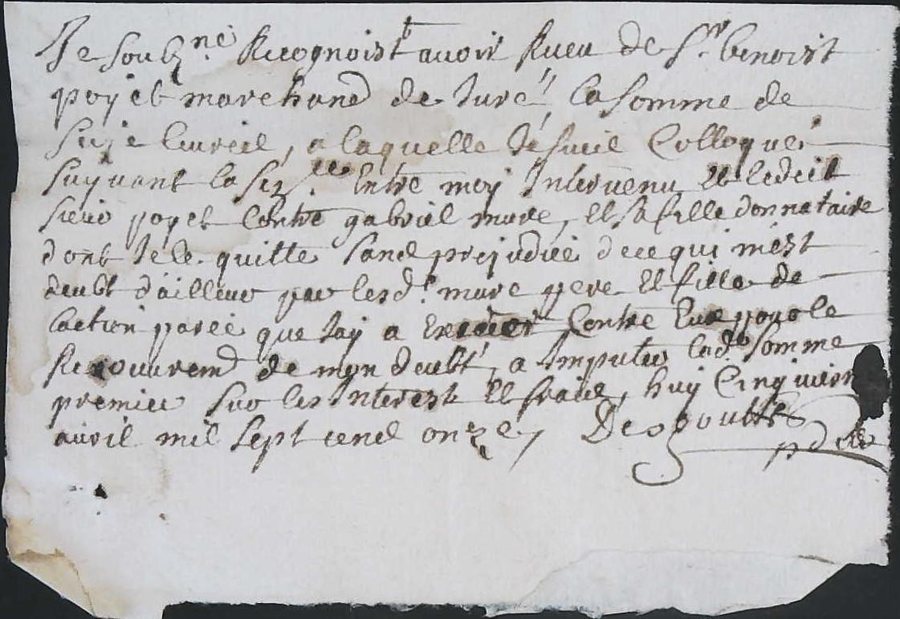 Je soubz.né Recognoist avoir Receu de Sr benoist
poyet marchand de Juré, la somme de
livres, a laquelle Jésuis Colloqué
suyvant la Entre moy Intervenu Et ledeit
sieur poyet Contre gabriel mure, Et sa fille donnataire
dont Je le quitte sans prejudice dece qui m'est
deubt d'ailleur par lesd. mure pere Et fille de
laction parée que Jay a Exercer Contre Eux pour le
Recouvremt de mon deubt, a Imputer lad. somme
premier sur les Interest Et frais, huy Cinquiem
avril mil sept cens onze,